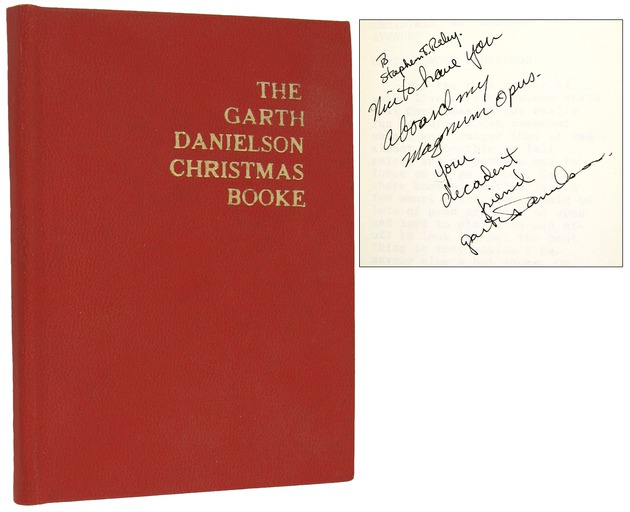 THE
GARTH
DANIELSON
CHRISTMAS
BOOKE
To
Stephen T. Riley.
Nice to have you
aboard my
Magnum Opus.
Your
decadent
friend
Garth Danielson.